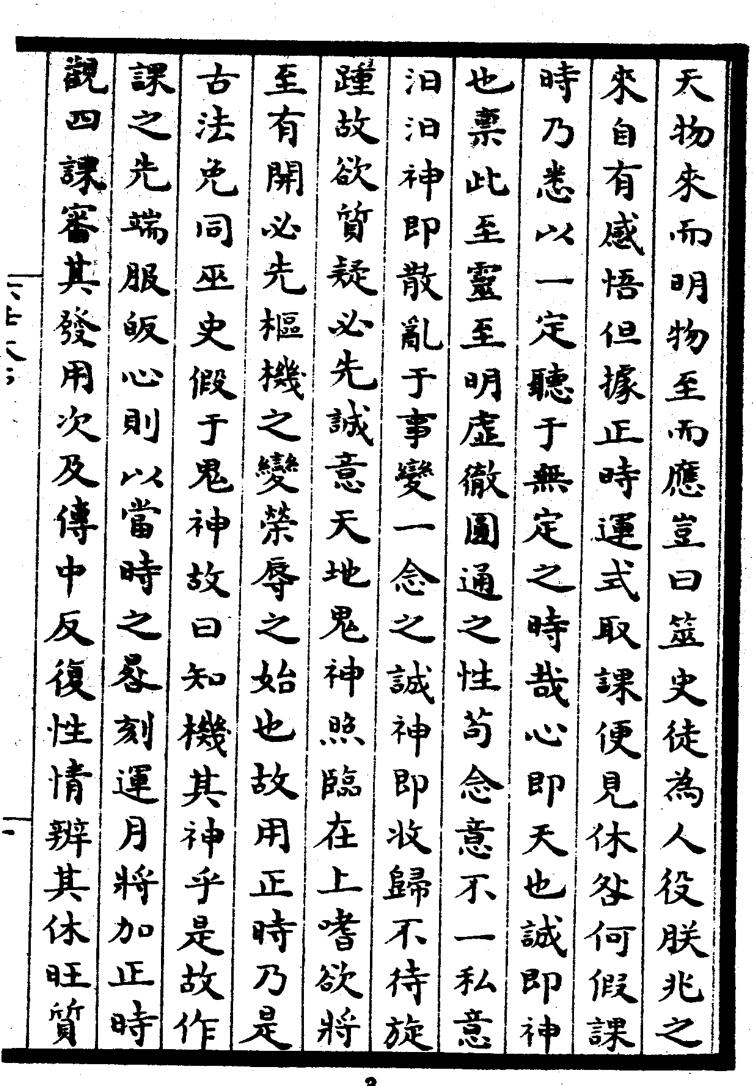 天物來而明物至而應豈曰筮史徒為人役朕兆之
來自有感悟但據正時運式取課便見休咎何假課
時乃悉以一定聽于無定之時哉心即天也誠即神
也稟此至靈至明虛徹圓通之性苟念意不一私意
汩汩神即散亂于事變一念之誠神即收歸不待旋
踵故欲質疑必先誠意天地鬼神煦臨在上嗜欲將
至有開必先樞機之變榮辱之始也故用正時乃是
古法免同巫史假于鬼神故曰知機其神乎是故作
課之先端服皈心則以當時之晷刻運月將加正時
觀四課審其發用次及傳中反復性情辨其休旺質